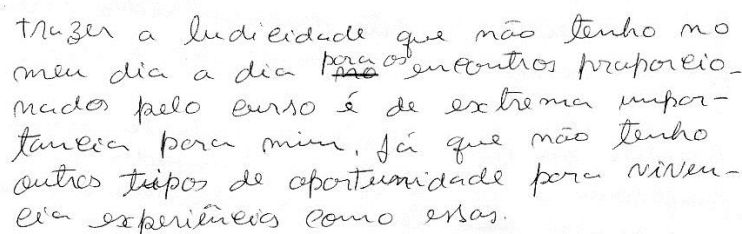 trazer a ludicidade que não tenho no
meu dia a dia para os encontros proporcio-
nados pelo curso é de extrema impor-
tancia para mim, já que não tenho
outros tipos de oportunidade para viven-
cia experiências como essas.